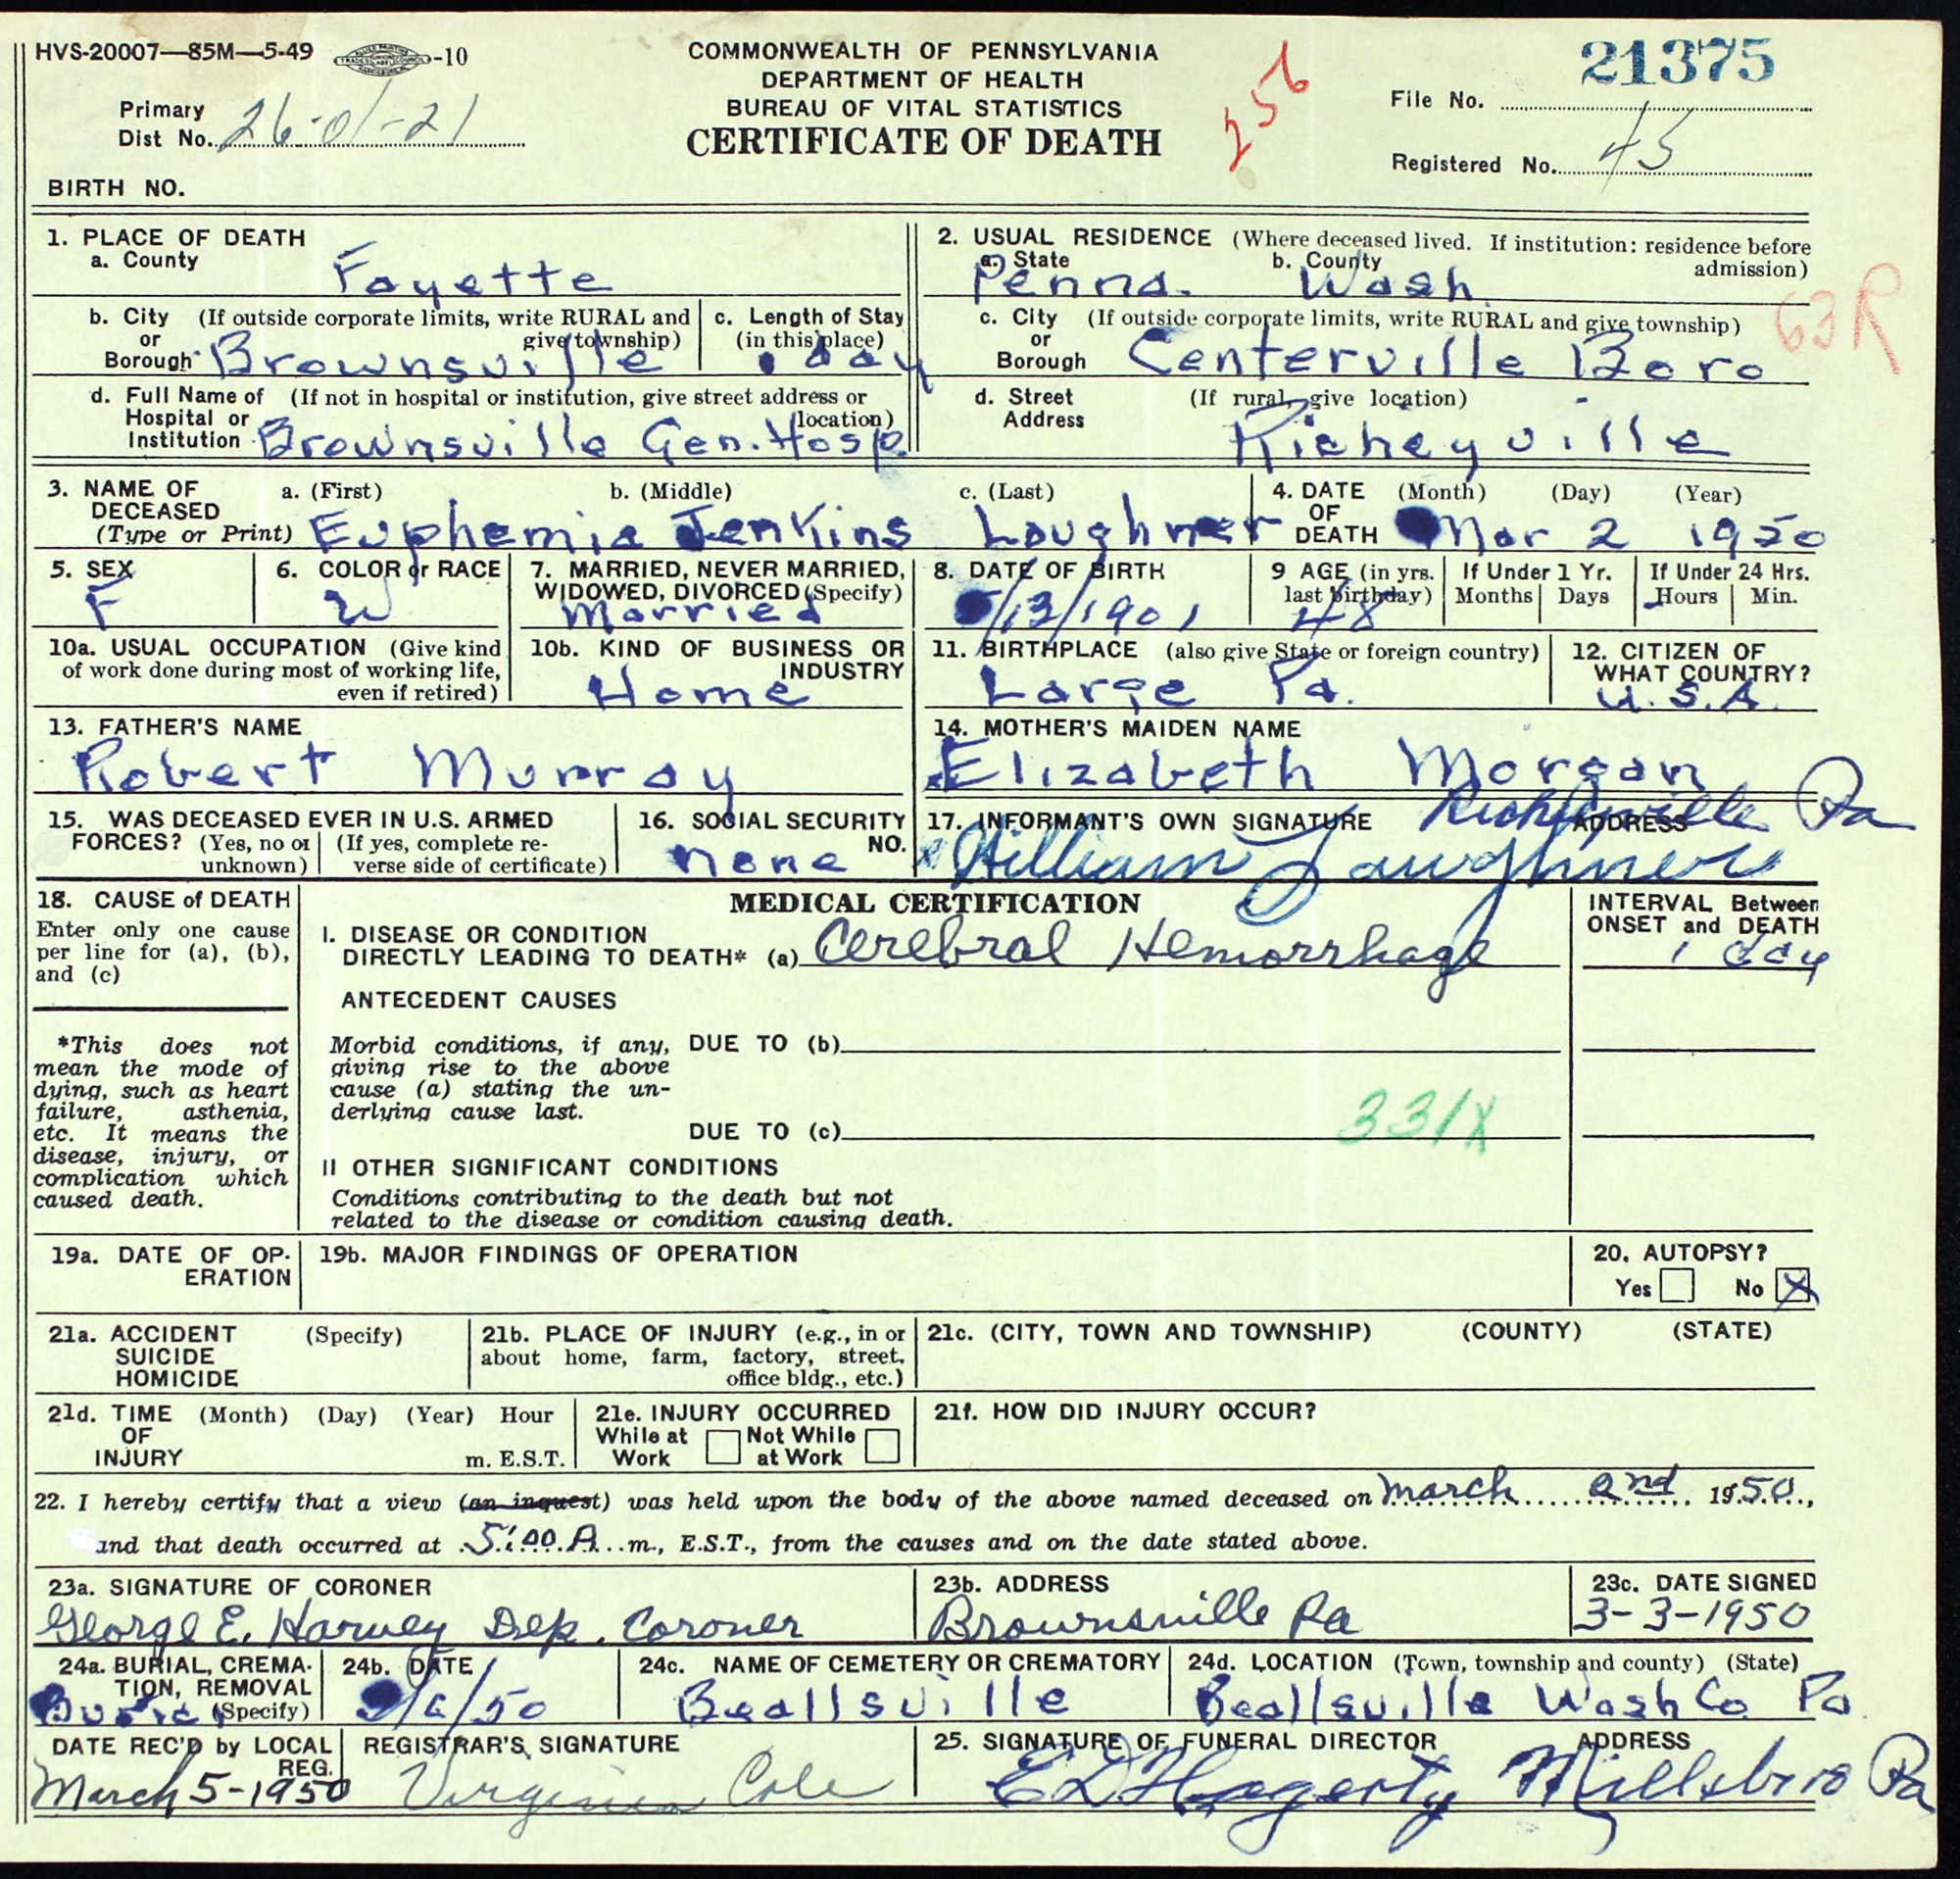 HVS-20007—85M—5-49 -10
COMMONWEALTH OF PENNSYLVANIA
DEPARTMENT OF HEALTH
BUREAU OF VITAL STATISTICS
CERTIFICATE OF DEATH
256
21375
File No.
Primary
Dist No. 26-01-21
Registered No. 45
BIRTH NO.
1. PLACE OF DEATH
a. County
Fayette
2. USUAL RESIDENCE (Where deceased lived. If institution: residence before admission)
a. State b. County
Penna. Wash.
63R
b. City (If outside corporate limits, write RURAL and
or give township)
Borough Brownsville
c. Length of Stay
(in this place)
1 day
c. City (If outside corporate limits, write RURAL and give township)
or
Borough Centerville Boro
d. Full Name of (If not in hospital or institution, give street address or
Hospital or location)
Institution Brownsville Gen. Hosp
d. Street (If rural, give location)
Address Richeyville
3. NAME OF a. (First) b. (Middle) c. (Last)
DECEASED
(Type or Print) Euphemia Jenkins Loughner
4. DATE (Month) (Day) (Year)
OF
DEATH Mar 2 1950
5. SEX
F
6. COLOR or RACE
W
7. MARRIED, NEVER MARRIED,
WIDOWED, DIVORCED (Specify)
Married
8. DATE OF BIRTH
/13/1901
9 AGE (in yrs.
last birthday)
48
If Under 1 Yr.
Months Days
If Under 24 Hrs.
Hours Min.
10a. USUAL OCCUPATION (Give kind
of work done during most of working life,
even if retired)
10b. KIND OF BUSINESS OR
INDUSTRY
Home
11. BIRTHPLACE (also give State or foreign country)
Large Pa.
12. CITIZEN OF
WHAT COUNTRY?
U.S.A.
13. FATHER'S NAME
Robert Murray
14. MOTHER'S MAIDEN NAME
Elizabeth Morgan
15. WAS DECEASED EVER IN U.S. ARMED
FORCES? (Yes, no or (If yes, complete re-
unknown) verse side of certificate)
16. SOCIAL SECURITY
NO.
none
17. INFORMANT'S OWN SIGNATURE ADDRESS
Richeyville Pa
William Laughner
18. CAUSE of DEATH
Enter only one cause
per line for (a), (b),
and (c)
*This does not
mean the mode of
dying, such as heart
failure, asthenia,
etc. It means the
disease, injury, or
complication which
caused death.
MEDICAL CERTIFICATION
I. DISEASE OR CONDITION
DIRECTLY LEADING TO DEATH* (a) Cerebral Hemorrhage
INTERVAL Between
ONSET and DEATH
1 day
ANTECEDENT CAUSES
Morbid conditions, if any, DUE TO (b)
giving rise to the above
cause (a) stating the un-
derlying cause last.
331X
DUE TO (c)
II OTHER SIGNIFICANT CONDITIONS
Conditions contributing to the death but not
related to the disease or condition causing death.
19a. DATE OF OP-
ERATION
19b. MAJOR FINDINGS OF OPERATION
20. AUTOPSY?
Yes No X
21a. ACCIDENT (Specify)
SUICIDE
HOMICIDE
21b. PLACE OF INJURY (e.g., in or
about home, farm, factory, street,
office bldg., etc.)
21c. (CITY, TOWN AND TOWNSHIP) (COUNTY) (STATE)
21d. TIME (Month) (Day) (Year) Hour
OF
INJURY m. E.S.T.
21e. INJURY OCCURRED
While at Not While
Work at Work
21f. HOW DID INJURY OCCUR?
22. I hereby certify that a view (an inquest) was held upon the body of the above named deceased on March 2nd 1950,
and that death occurred at 5:00 A m., E.S.T., from the causes and on the date stated above.
23a. SIGNATURE OF CORONER
George E. Harvey Dep. Coroner
23b. ADDRESS
Brownsville Pa
23c. DATE SIGNED
3-3-1950
24a. BURIAL, CREMA-
TION, REMOVAL
Burial (Specify)
24b. DATE
/6/50
24c. NAME OF CEMETERY OR CREMATORY
Beallsville
24d. LOCATION (Town, township and county) (State)
Beallsville Wash Co. Pa.
DATE REC'D by LOCAL
REG.
March 5-1950
REGISTRAR'S SIGNATURE
Virginia Cole
25. SIGNATURE OF FUNERAL DIRECTOR ADDRESS
E D Hagerty Millsboro Pa